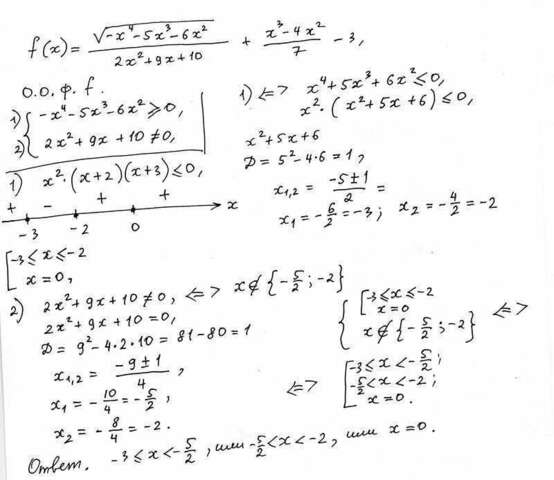 f(x) = √(-x⁴-5x³-6x²) / (2x²+9x+10) + (x³-4x²)/7 - 3,
О.О.ф. f.
1) { -x⁴-5x³-6x² ≥ 0,
2) { 2x²+9x+10 ≠ 0,
1) <=> x⁴+5x³+6x² ≤ 0,
x²·(x²+5x+6) ≤ 0,
x²+5x+6
D = 5²-4·6 = 1,
x₁,₂ = (-5±1)/2 =
x₁ = -6/2 = -3; x₂ = -4/2 = -2
1) x²·(x+2)(x+3) ≤ 0,
+ - + + x
-3 -2 0
[ -3 ≤ x ≤ -2
x = 0,
2) 2x²+9x+10 ≠ 0, <=> x ∉ {-5/2; -2}
2x²+9x+10 = 0,
D = 9²-4·2·10 = 81-80 = 1
x₁,₂ = (-9±1)/4,
x₁ = -10/4 = -5/2,
x₂ = -8/4 = -2.
{ [ -3 ≤ x ≤ -2
x = 0
x ∉ {-5/2; -2} <=>
<=> [ -3 ≤ x < -5/2;
-5/2 < x < -2;
x = 0.
Ответ. -3 ≤ x < -5/2, или -5/2 < x < -2, или x = 0.